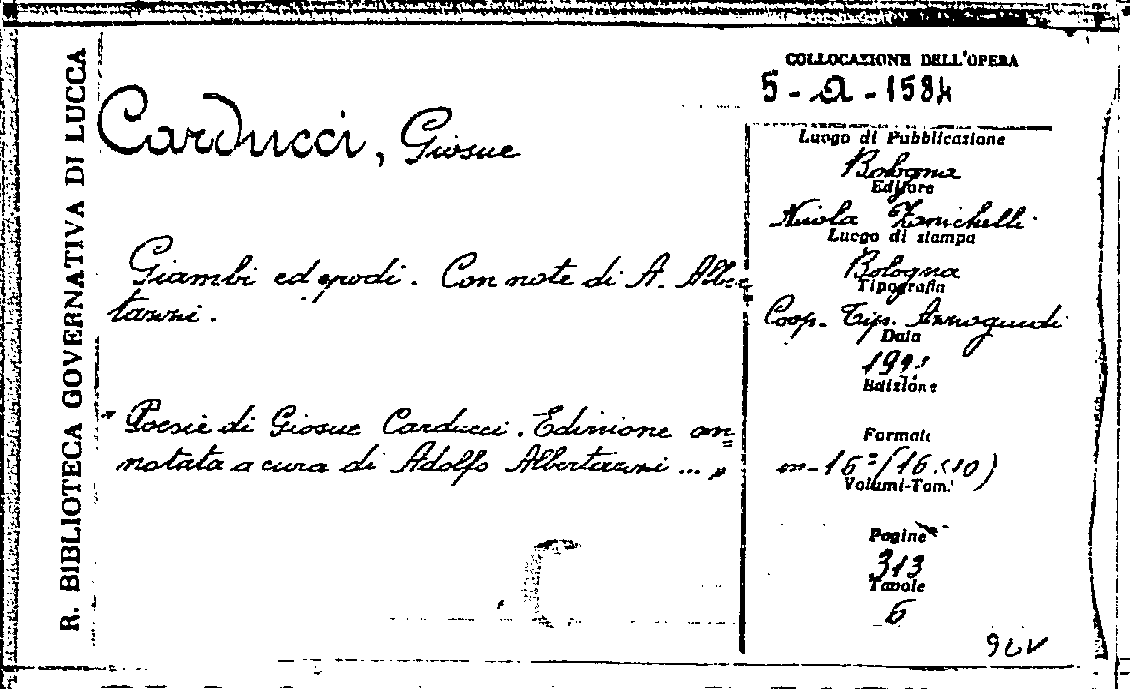 R. BIBLIOTECA GOVERNATIVA DI LUCCA
COLLOCAZIONE DELL'OPERA
5-a-1584
Carducci, Giosue
Giambi ed epodi. Con note di A. Alber
tazzi.
"Poesie di Giosue Carducci. Edizione an=
notata a cura di Adolfo Albertazzi ... "
Luogo di Pubblicazione
Bologna
Editore
Nicola Zanichelli
Luogo di stampa
Bologna
Tipografia
Coop. Tip. Azzoguidi
Data
Edizione
Formato
in-16°
Volumi-Tom.
Pagine
313
Tavole
6